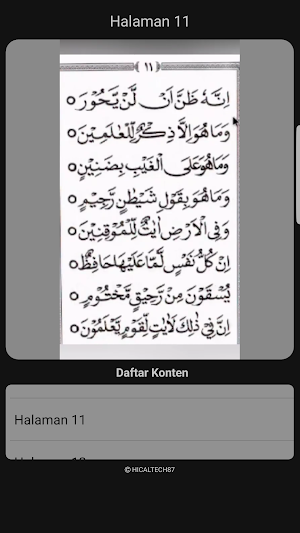 Halaman 11
١١
اِنَّهٗ ظَنَّ اَنْ لَّنْ يَّحُوْرَ
وَمَا هُوَ اِلَّا ذِكْرٌ لِّلْعٰلَمِيْنَ
وَمَا هُوَ عَلَى الْغَيْبِ بِضَنِيْنٍ
وَمَا هُوَ بِقَوْلِ شَيْطٰنٍ رَّجِيْمٍ
وَفِى الْاَرْضِ اٰيٰتٌ لِّلْمُوْقِنِيْنَ
اِنْ كُلُّ نَفْسٍ لَّمَّا عَلَيْهَا حَافِظٌ
يُسْقَوْنَ مِنْ رَّحِيْقٍ مَّخْتُوْمٍ
اِنَّ فِيْ ذٰلِكَ لَاٰيٰتٍ لِّقَوْمٍ يَّعْلَمُوْنَ
Daftar Konten
Halaman 11
© HICALTECH87